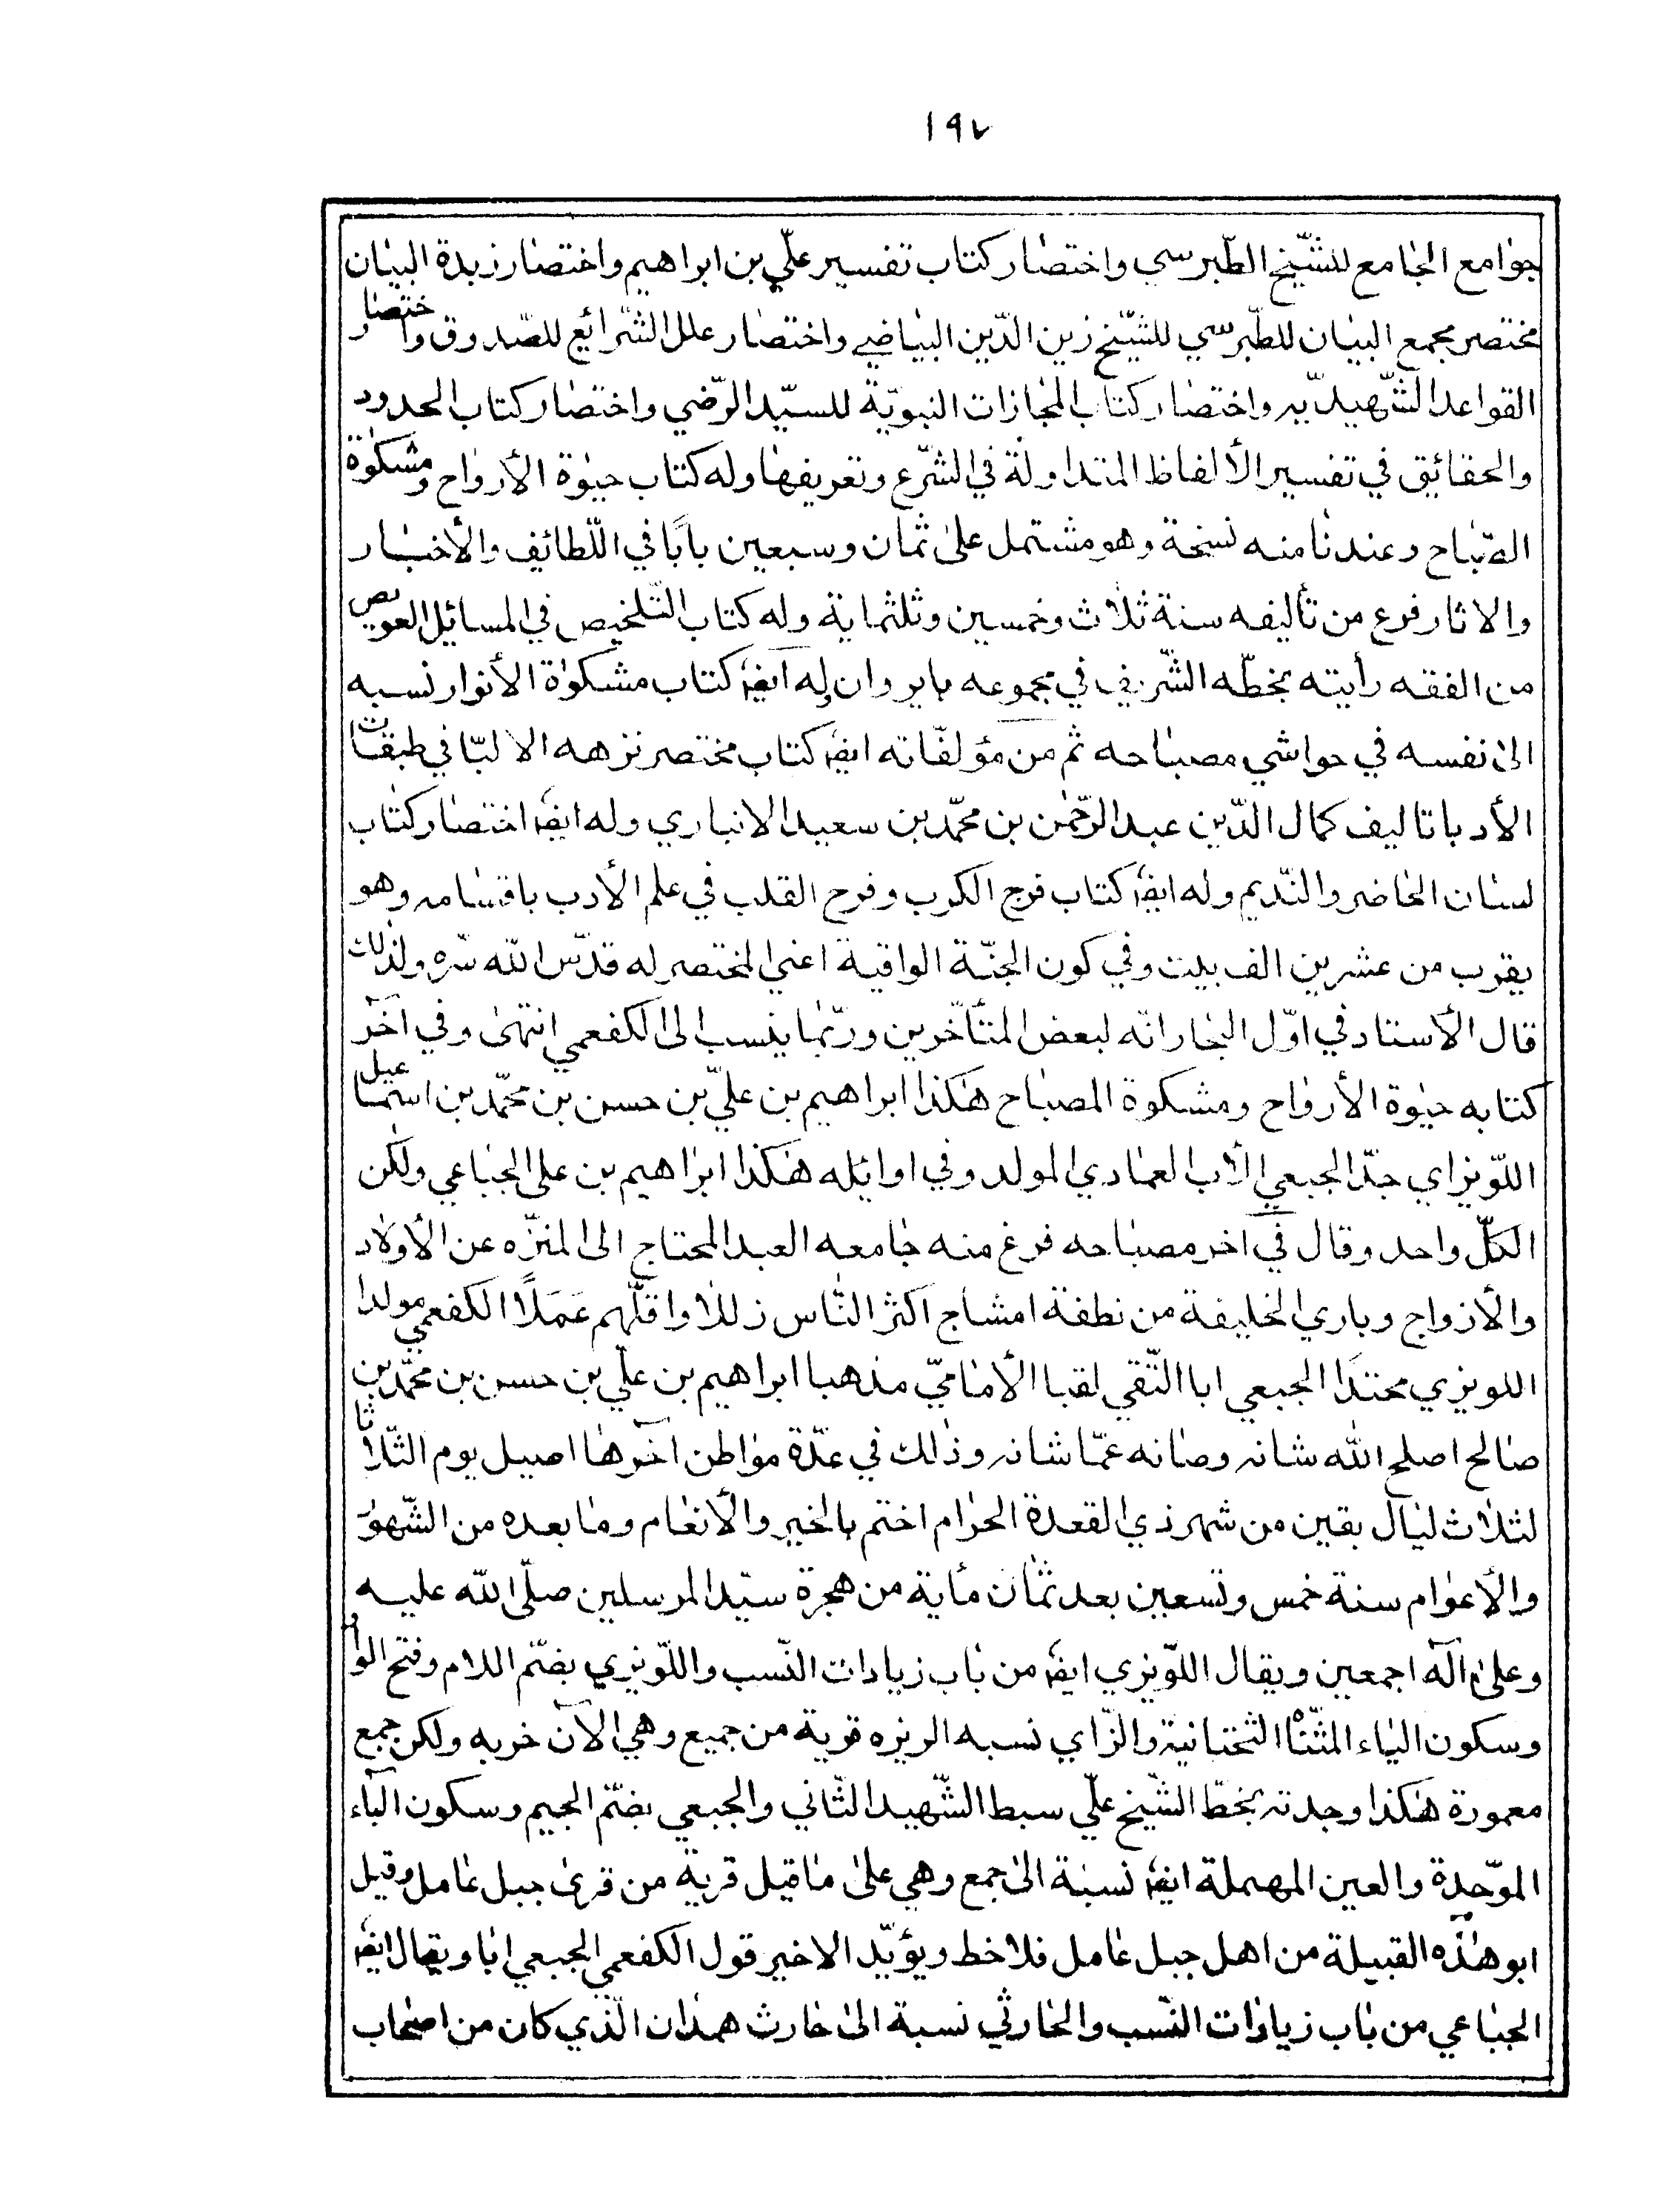 ١٩٧
جوامع الجامع للشّيخ الطّبرسي واختصار كتاب تفسير عليّ بن ابراهيم واختصار زبدة البيان
مختصر مجمع البيان للطّبرسي للشّيخ زين الدّين البياضي واختصار علل الشّرائع للصّدوق واختصار
القواعد الشّهيديّه واختصار كتاب المجازات النبويّة للسيّد الرّضي واختصار كتاب الحدود
والحقائق في تفسير الألفاظ المتداولة في الشّرع وتعريفها وله كتاب حيوة الأرواح ومشكوة
الصّباح وعندنا منه نسخة وهو مشتمل على ثمان وسبعين بابًا في اللّطائف والأخبار
والاثار فرع من تأليفه سنة ثلاث وخمسين وثلثماية وله كتاب التّلخيص في المسائل العويص
من الفقه رأيته بخطّه الشّريف في مجموعه باير وان له ايضا كتاب مشكوة الأنوار نسبه
الى نفسه في حواشي مصباحه ثم من مؤلفّاته ايضا كتاب مختصر نزهه الالبّا في طبقات
الأدبا تاليف كمال الدّين عبد الرّحمن بن محمّد بن سعيد الانباري وله ايضا اختصار كتاب
لسان الحاضر والنّديم وله ايضا كتاب فرج الكرب وفرح القلب في علم الأدب باقسامه وهو
يقرب من عشرين الف بيت وفي كون الجنّة الواقية اعني المختصر له قدّس الله سّره ولذلك
قال الأستاد في اوّل البحار انّه لبعض المتأخّرين وربّما ينسب الى الكفعمي انتهى وفي آخر
كتابه حيوة الأرواح ومشكوة المصباح هكذا ابراهيم بن عليّ بن حسن بن محمّد بن اسمعيل
اللّويزاي جدّا الجبعي الأب العمادي المولد وفي اوائله هكذا ابراهيم بن علي الجباعي ولكن
الكلّ واحد وقال في اخر مصباحه فرغ منه جامعه العبد المحتاج الى المنزّه عن الأولاد
والأزواج وباري الخليفة من نطفة امشاج اكثر النّاس زللا واقلّهم عَمَلًا الكفعمي مولدا
اللويزي محتدًا الجبعي ابا التّقي لقبا الأماميّ مذهبا ابراهيم بن علّي بن حسن بن محمّد بن
صالح اصلح الله شانه وصانه عمّا شانه وذلك في عدّة مواطن آخرها اصيل يوم الثّلاثا
لثلاث ليال بقين من شهر ذي القعدة الحرام اختم بالخير والأنعام وما بعده من الشّهور
والأعوام سنة خمس وتسعين بعد ثمان مأية من هجرة سيّد المرسلين صلّى الله عليه
وعلى آله اجمعين ويقال اللوّيزي ايضا من باب زيادات النّسب واللوّيزي بضّم اللام وفتح الواو
وسكون الياء المثّناة التّحتانية والزّاي نسبه الريزه قرية من جميع وهي الآن خربه ولكن جمع
معمورة هكذا وجدته بخطّ الشّيخ علّي سبط الشّهيد الثّاني والجبعي بضّم الجيم وسكون الباء
الموّحدة والعين المهملة ايضا نسبة الى جمع وهي على ما قيل قرية من قرى جبل عامل وقيل
ابو هذه القبيلة من اهل جبل عامل فلاخط ويؤيّد الاخير قول الكفعمي الجبعي ابا ويقال ايضا
الجباعي من باب زيادات النّسب والحارثّي نسبة الى حارث همدان الّذي كان من اصحاب